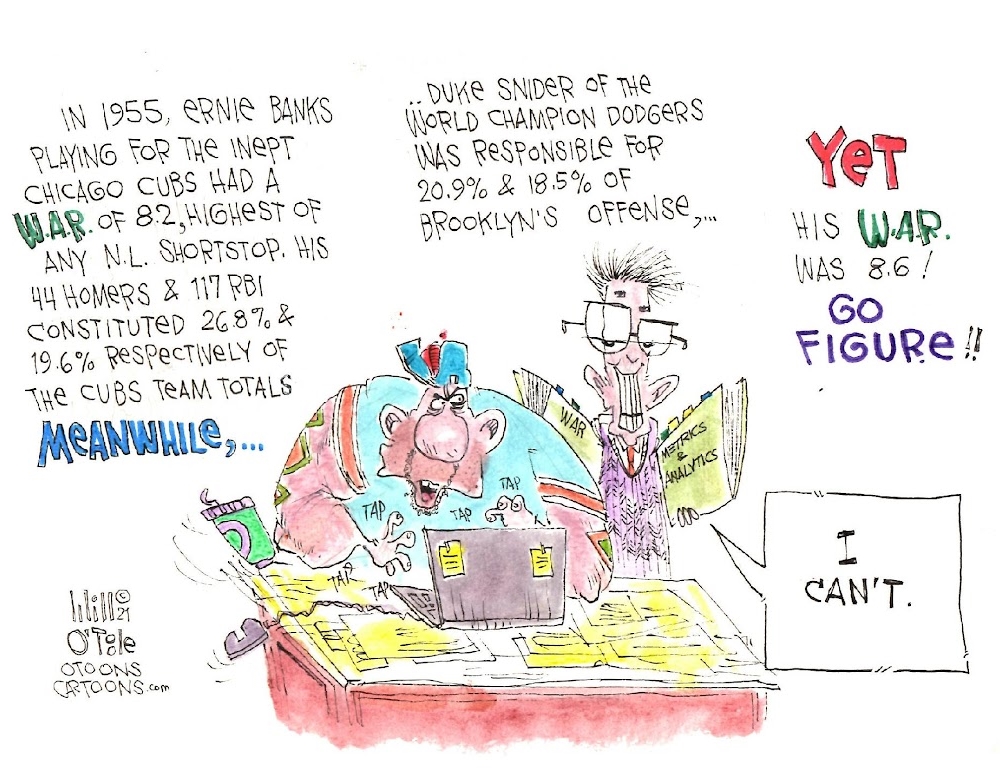 IN 1955, ERNIE BANKS
PLAYING FOR THE INEPT
CHICAGO CUBS HAD A
W.A.R. OF 8.2, HIGHEST OF
ANY N.L. SHORTSTOP. HIS
44 HOMERS & 117 RBI
CONSTITUTED 26.8% &
19.6% RESPECTIVELY OF
THE CUBS TEAM TOTALS
MEANWHILE,...
..DUKE SNIDER OF THE
WORLD CHAMPION DODGERS
WAS RESPONSIBLE FOR
20.9% & 18.5% OF
BROOKLYN'S OFFENSE,...
YET
HIS W.A.R.
WAS 8.6!
GO
FIGURE!!
WAR
METRICS
&
ANALYTICS
TAP
TAP
TAP
TAP
TAP
I
CAN'T.
Will ©
21
O'Toole
OTOONS
CARTOONS.com